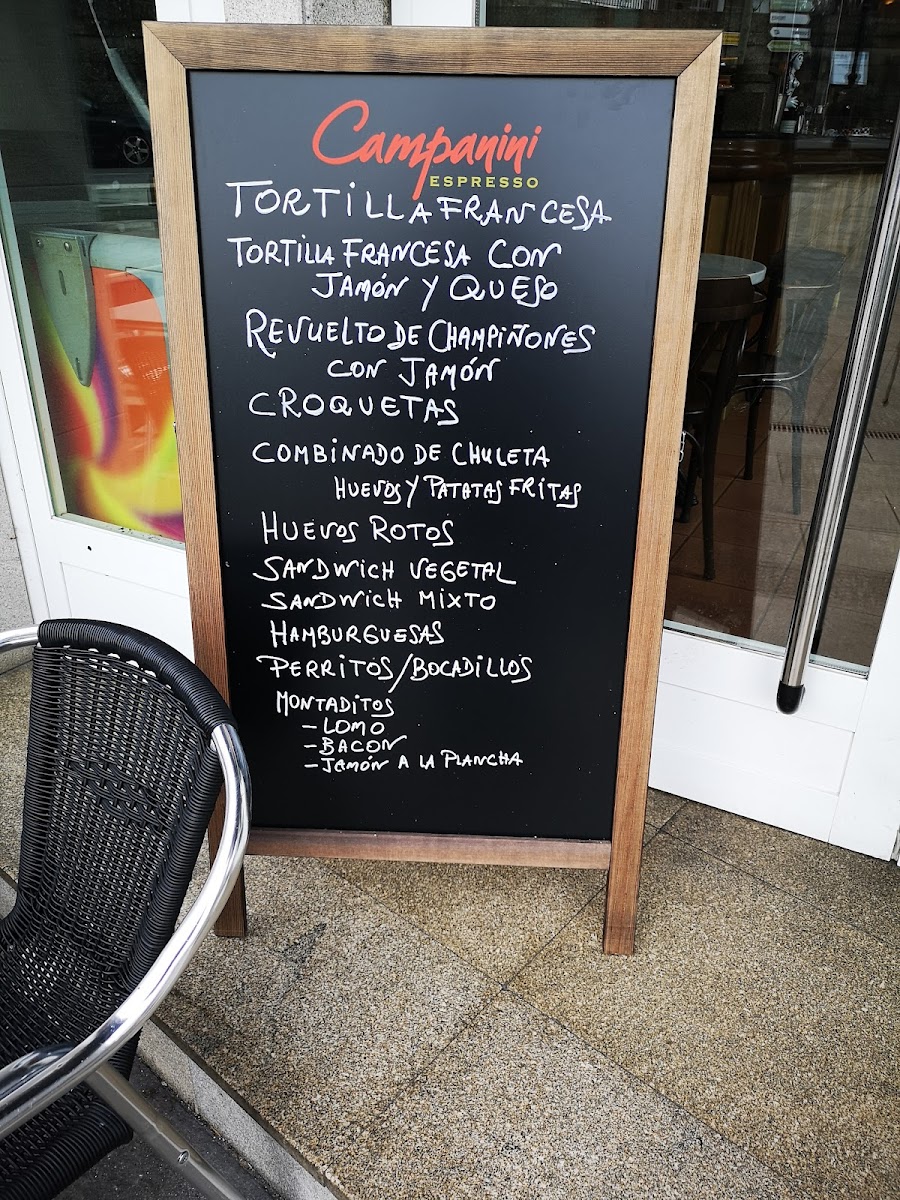 Campanini
ESPRESSO
TORTILLA FRANCESA
TORTILLA FRANCESA CON
JAMÓN Y QUESO
REVUELTO DE CHAMPIÑONES
CON JAMÓN
CROQUETAS
COMBINADO DE CHULETA
HUEVOS Y PATATAS FRITAS
HUEVOS ROTOS
SANDWICH VEGETAL
SANDWICH MIXTO
HAMBURGUESAS
PERRITOS/BOCADILLOS
MONTADITOS
- LOMO
- BACON
- JAMÓN A LA PLANCHA